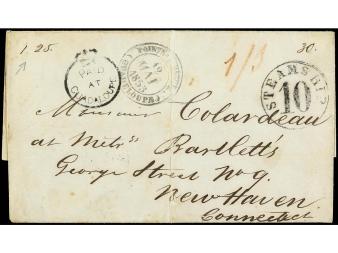 1 25.
30.
PAID
AT
GUADALOUPE
POINTE
10
MAI
1/3
STEAMSHIP
10
Monsieur Colardeau
at Mitrss Bartlett's
George Street No 9.
New Haven
Connecticut